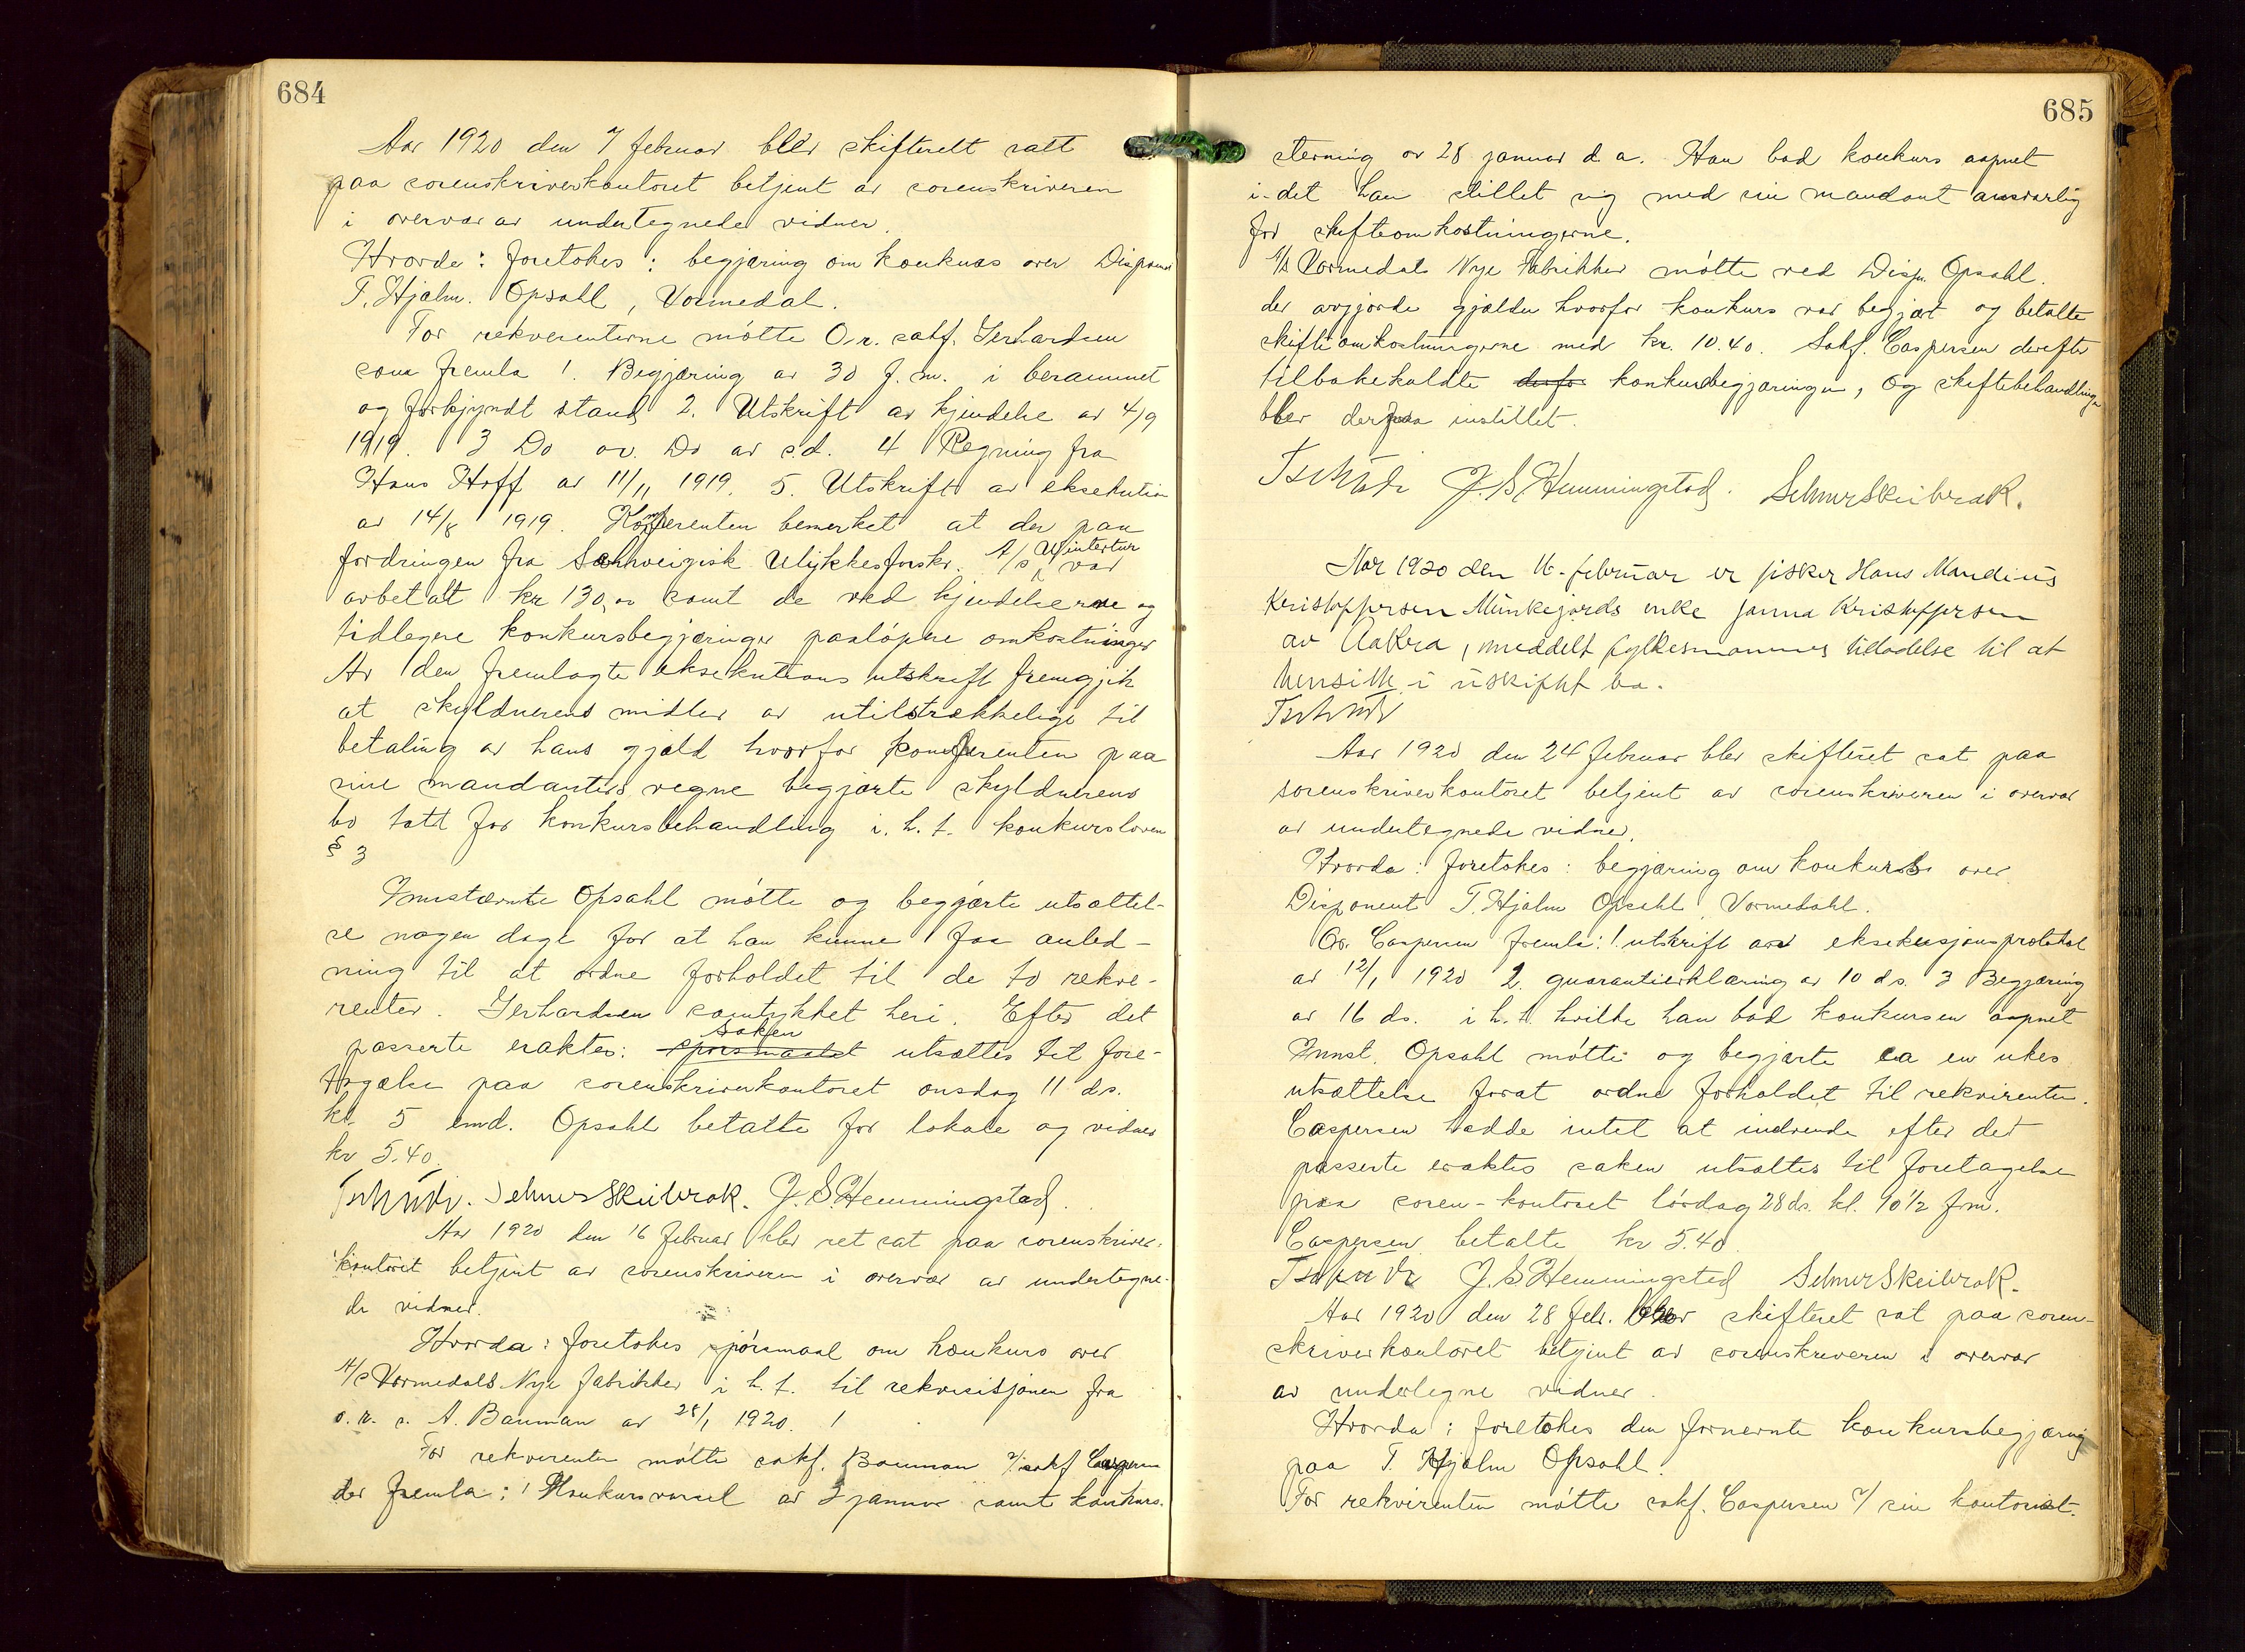 684
Aar 1920 den 7 februar blev skifterett satt
paa sorenskriverkontoret betjent av sorenskriveren
i overvær av undertegnede vidner.
Hvorda: foretokes: begjæring om konkurs over Disponent
T. Hjalm. Opsahl, Vormedal.
For rekverenterne møtte O.r. sakf. Gerhardsen
som fremla 1. Begjæring av 30 f.m. i berammet
og forkjyndt stand 2. Utskrift av kjendelse av 4/9
1919. 3 Do av Do av s.d. 4 Regning fra
Hans Hoff av 11/11 1919. 5. Utskrift av eksekution
av 14/8 1919. Komparenten bemerket at der paa
fordringen fra Schweizisk Ulykkesforsk. A/s Wintertur var
avbetalt kr 130,00 samt de ved kjendelserne og
tidlegere konkursbegjæringer paaløpne omkostninger
Av den fremlagte eksekutions utskrift fremgjik
at skyldnerens midler er utilstrækkelige til
betaling av hans gjæld hvorfor komparenten paa
sine mandanters vegne begjærte skyldnerens
bo tatt for konkursbehandling i. h. t. konkursloven
§ 3
Innstævnte Opsahl møtte og begjærte utsættel-
se nogen dage for at han kunne faa anled-
ning til at ordne forholdet til de to rekve-
renter. Gerhardsen samtykket heri. Efter det
passerte eraktes: spørsmaalet saken utsættes til fore-
tagelse paa sorenskriverkontoret onsdag 11 ds.
kl. 5 emd. Opsahl betalte for lokale og vidner
kr 5.40.
Tschudi. Selmer Skeibrok. J. S. Hemmingstad.
Aar 1920 den 16 februar blev ret sat paa sorenskriver-
kontoret betjent av sorenskriveren i overvær av undertegne-
de vidner.
Hvorda: foretokes spørsmaal om konkurs over
A/S Vormedals Nye Fabrikker i h. t. til rekvisisjonen fra
o. r. s. A. Bauman av 28/1 1920. 1
For rekverenten møtte sakf. Bauman v/ sakf Caspersen
der fremla: 1 Konkursvarsel av 2 januar samt konkurs-
685
stevning av 28 januar d a. Han bad konkurs aapnet
i-det han stillet sig med sin mandant ansvarlig
for skifteomkostningerne.
A/S Vormedals Nye Fabrikker møtte ved Disp. Opsahl.
der avgjorde gjælden hvorfor konkurs var begjært og betalte
skifteomkostningerne med kr. 10.40. Sakf. Caspersen derefter
tilbakekaldte derfor konkursbegjæringen, og skiftebehandlingen
blev derpaa instillet.
Tschudi J. S. Hemmingstad. Selmer Skeibrok.
Aar 1920 den 16. februar er fisker Hans Mandius
Kristoffersen Munkejords enke Janna Kristoffersen
av Aakra, meddelt fylkesmannens tiladelse til at
hensitte i uskiftet bo.
Tschudi
Aar 1920 den 24 februar blev skifteret sat paa
sorenskriverkontoret betjent av sorenskriveren i overvær
av undertegnede vidner.
Hvorda: foretokes: begjæring om konkurs over
Disponent T. Hjalm Opsahl, Vormedahl.
Or. Caspersen fremla: 1 utskrift av eksekusjonsprotokol
av 12/1 1920 2. guarantierklæring av 10 ds. 3 Begjæring
av 16 ds. i h. t. hvilke han bad konkursen aapnet
Innst. Opsahl møtte og begjærte ca en ukes
utsættelse forat ordne forholdet til rekvirenten.
Caspersen hadde intet at indvende efter det
passerte eraktes saken utsættes til foretagelse
paa soren-kontoret lørdag 28 ds. kl. 10 1/2 fm.
Caspersen betalte kr 5.40.
Tschudi J. S. Hemmingstad Selmer Skeibrok.
Aar 1920 den 28 febr. blev skifteret sat paa soren-
skriverkontoret betjent av sorenskriveren i overvær
av undertegne vidner.
Hvorda: foretokes den fornevnte konkursbegjæring
paa T. Hjalm Opsahl.
For rekvirenten møtte sakf. Caspersen v/ sin kontorist.